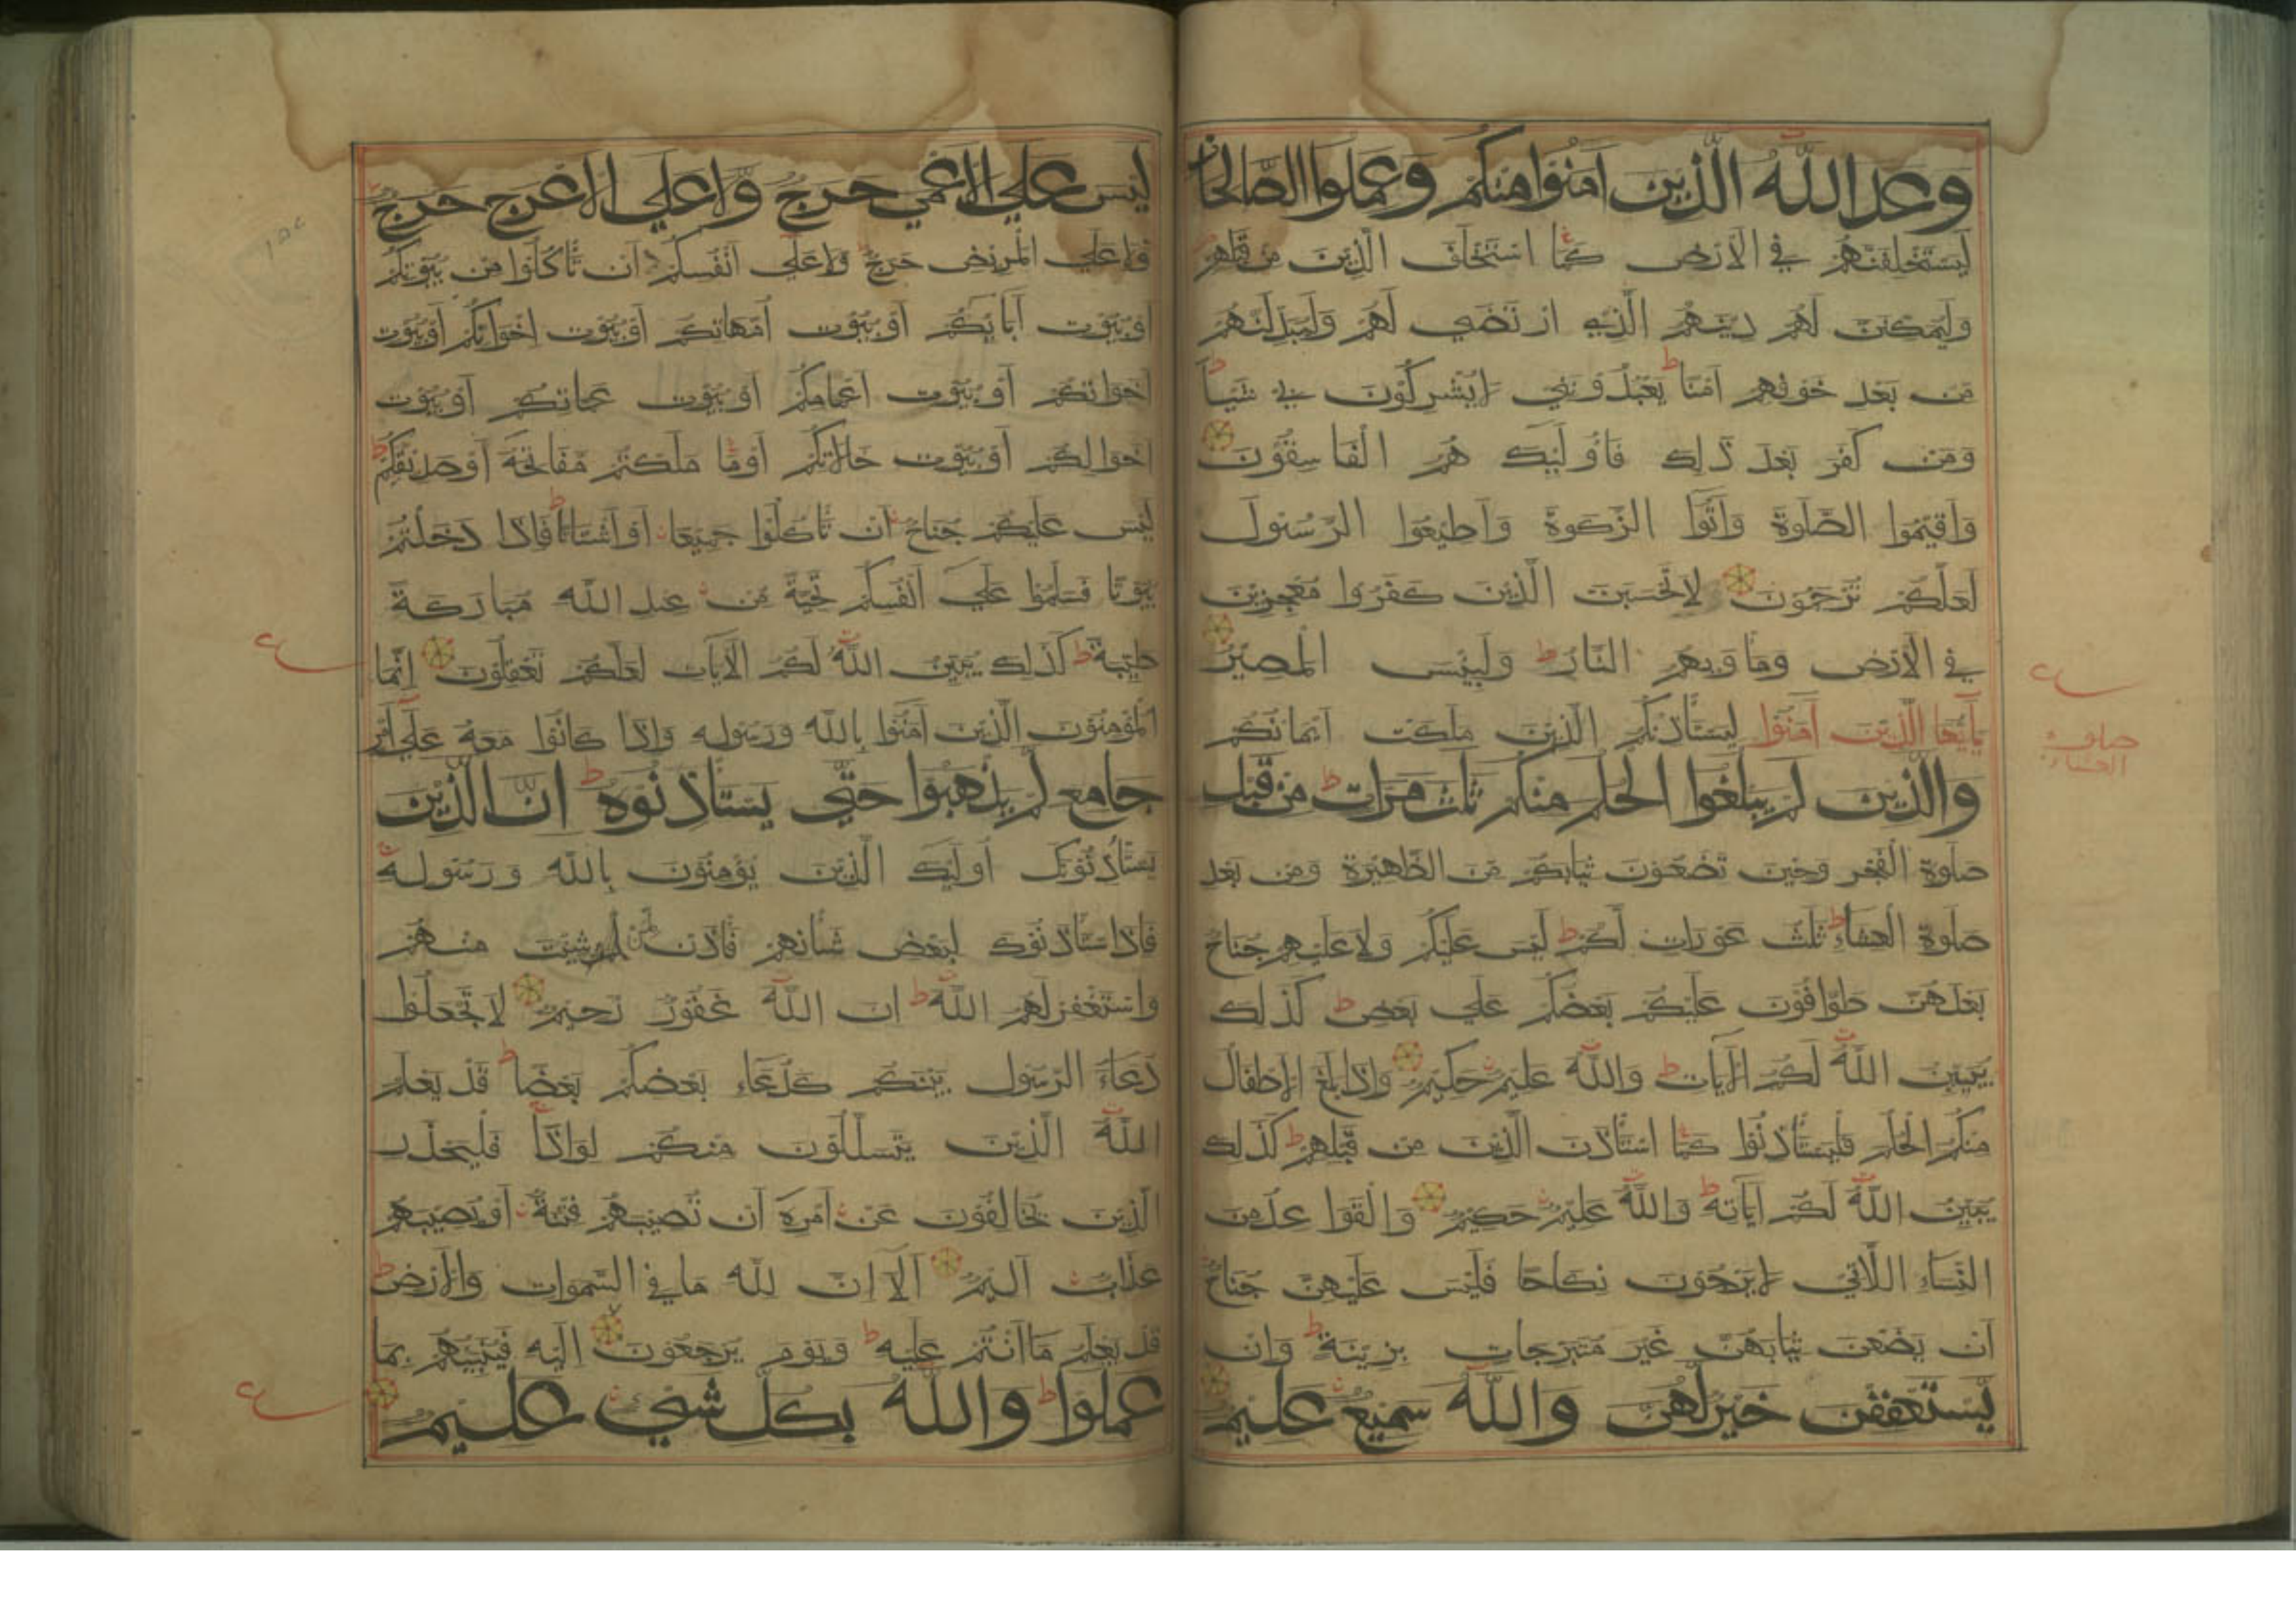 وعد الله الذين امنوا منكم وعملوا الصالحات
ليستخلفنهم في الارض كما استخلف الذين من قبلهم
وليمكنن لهم دينهم الذي ارتضي لهم وليبدلنهم
من بعد خوفهم امنا ط يعبدونني لا يشركون بي شيا ط
ومن كفر بعد ذلك فاوليك هم الفاسقون
واقيموا الصلوة واتوا الزكوة واطيعوا الرسول
لعلكم ترحمون لا تحسبن الذين كفروا معجزين
في الارض وماويهم النار ط ولبيس المصير
يايها الذين امنوا ليستاذنكم الذين ملكت ايمانكم
والذين لم يبلغوا الحلم منكم ثلث مرات ط من قبل
صلوة الفجر وحين تضعون ثيابكم من الظهيرة ومن بعد
صلوة العشاء ط ثلث عورات لكم ط ليس عليكم ولا عليهم جناح
بعدهن طوافون عليكم بعضكم علي بعض ط كذلك
يبين الله لكم الايات ط والله عليم حكيم واذا بلغ الاطفال
منكم الحلم فليستاذنوا كما استاذن الذين من قبلهم ط كذلك
يبين الله لكم اياته ط والله عليم حكيم والقوا عد من
النساء اللاتي لا يرجون نكاحا فليس عليهن جناح
ان يضعن ثيابهن غير متبرجات بزينة ط وان
يستعففن خير لهن والله سميع عليم
ع
صلوة
العشاء
ليس علي الاعمي حرج ولا علي الاعرج حرج
ولا علي المريض حرج ولا علي انفسكم ان تاكلوا من بيوتكم
او بيوت ابايكم او بيوت امهاتكم او بيوت اخوانكم او بيوت
اخواتكم او بيوت اعمامكم او بيوت عماتكم او بيوت
اخوالكم او بيوت خالاتكم او ما ملكتم مفاتحه او صديقكم ط
ليس عليكم جناح ان تاكلوا جميعا او اشتاتا ط فاذا دخلتم
بيوتا فسلموا علي انفسكم تحية من عند الله مباركة
طيبة ط كذلك يبين الله لكم الايات لعلكم تعقلون انما
المؤمنون الذين امنوا بالله ورسوله واذا كانوا معه علي امر
جامع لم يذهبوا حتي يستاذنوه ط ان الذين
يستاذنونك اوليك الذين يؤمنون بالله ورسوله
فاذا استاذنوك لبعض شانهم فاذن لمن شيت منهم
واستغفر لهم الله ط ان الله غفور رحيم لا تجعلوا
دعاء الرسول بينكم كدعاء بعضكم بعضا ط قد يعلم
الله الذين يتسللون منكم لواذا فليحذر
الذين يخالفون عن امره ان تصيبهم فتنة او يصيبهم
عذاب اليم الا ان لله ما في السموات والارض ط
قد يعلم ما انتم عليه ط ويوم يرجعون اليه فينبيهم بما
عملوا ط والله بكل شي عليم
ع
ع